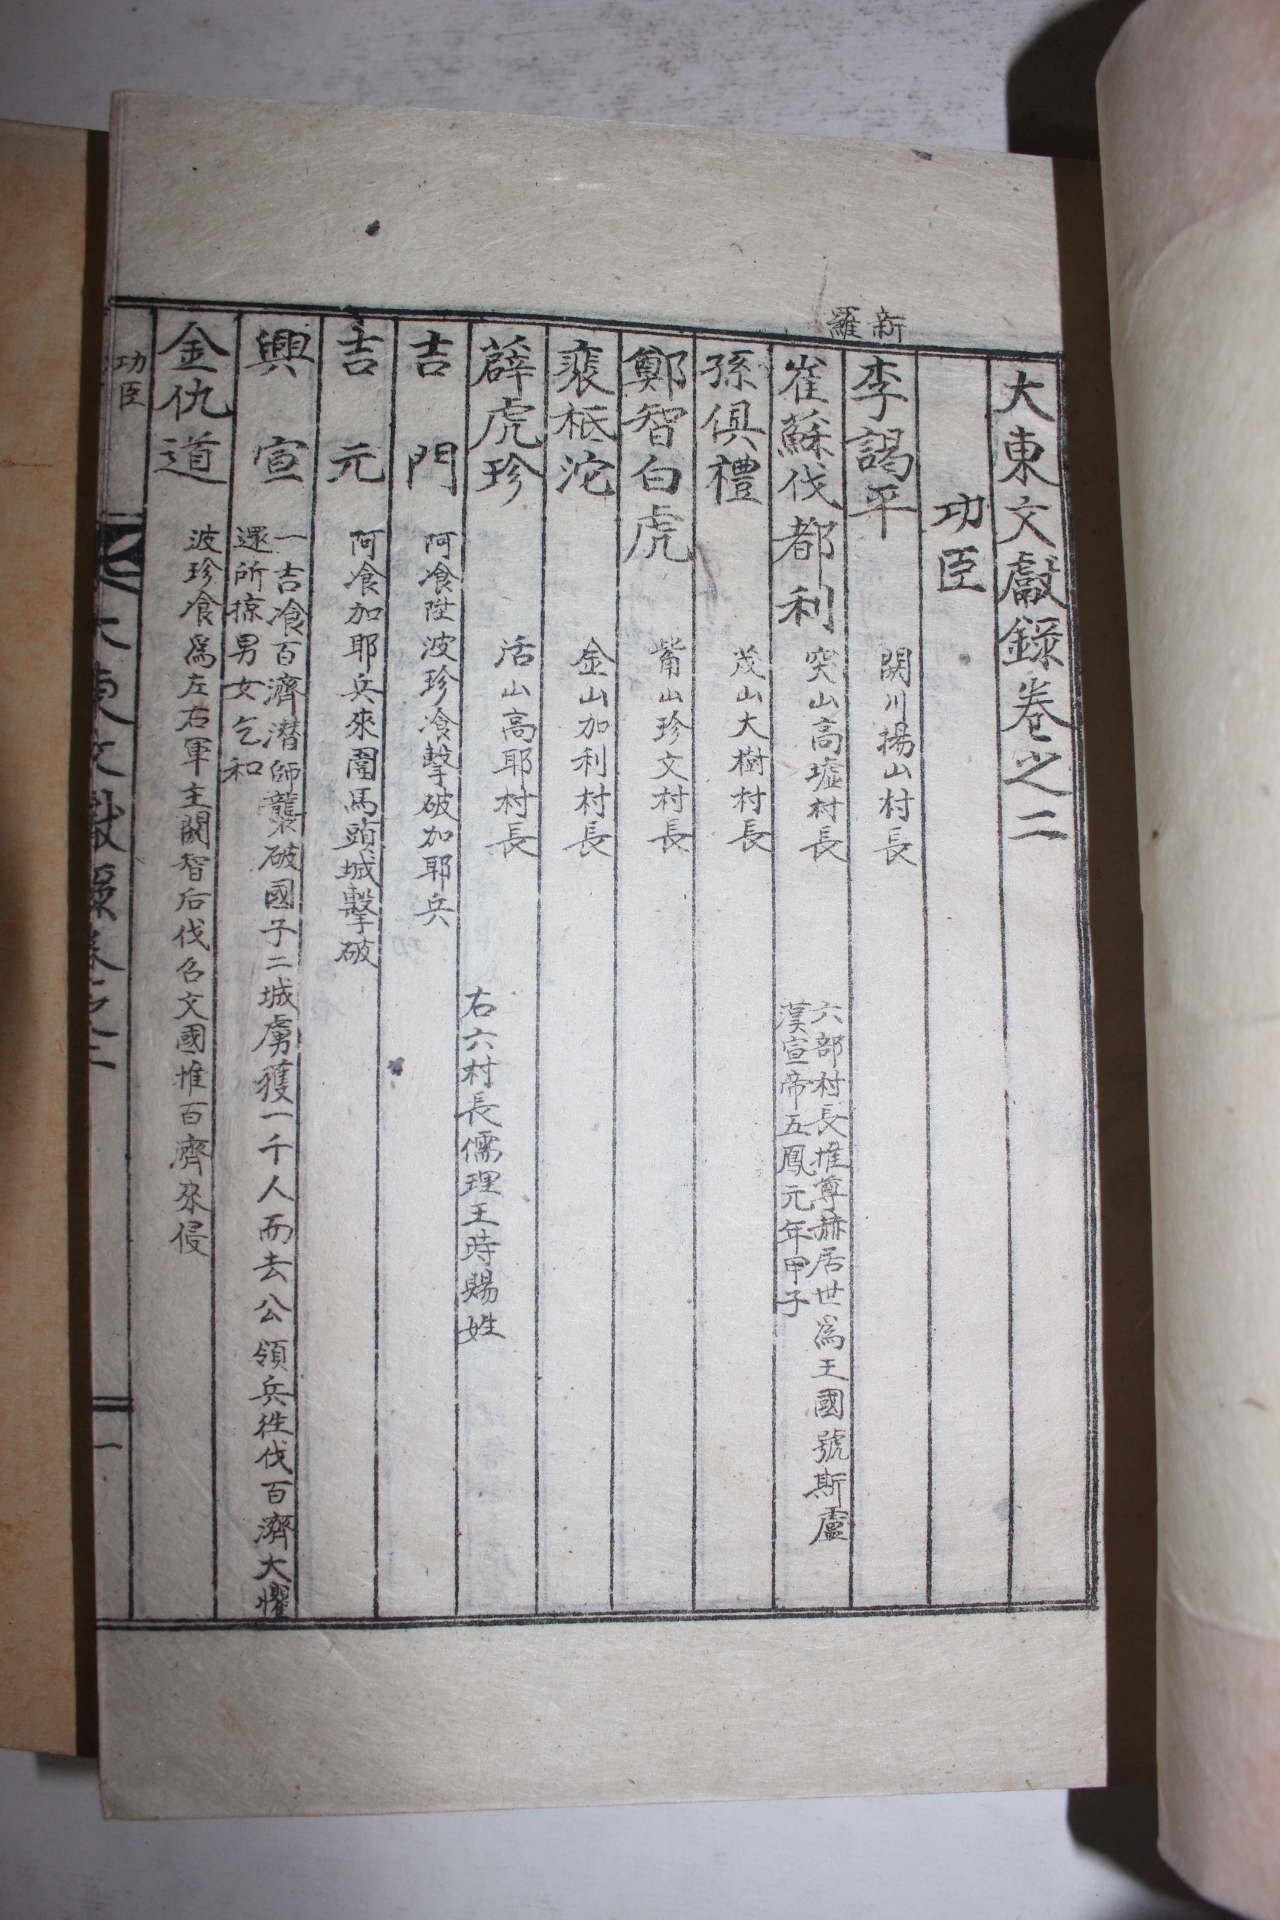 大東文獻錄卷之二
功臣
新羅
李謁平 閼川揚山村長
崔蘇伐都利 突山高墟村長 六部村長推尊赫居世爲王國號斯盧
漢宣帝五鳳元年甲子
孫俱禮 茂山大樹村長
鄭智白虎 觜山珍文村長
裵祗沱 金山加利村長
薛虎珍 活山高耶村長 右六村長儒理王時賜姓
吉門 阿飡陞波珍飡擊破加耶兵
吉元 阿飡加耶兵來圍馬頭城擊破
興宣 一吉飡百濟潛師襲破國子二城虜獲一千人而去公領兵徃伐百濟大懼
還所掠男女乞和
金仇道 波珍飡爲左右軍主閼智后伐召文國推百濟來侵
功臣
大東文獻錄卷之二
一